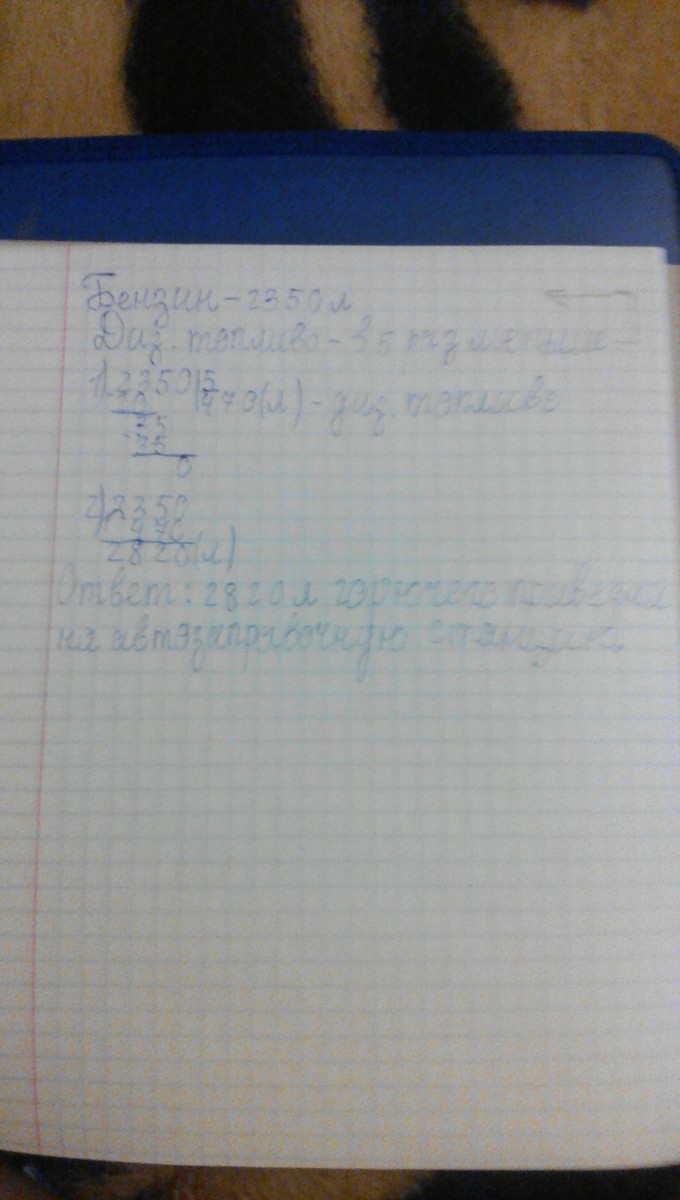 Бензин - 2350 л
Диз. топливо - в 5 раз меньше
1) 2350 | 5
20 | 470 (л) - диз. топливо
35
35
0
2) 2350
470
2820 (л)
Ответ: 2820 л горючего привезли
на автозаправочную станцию.